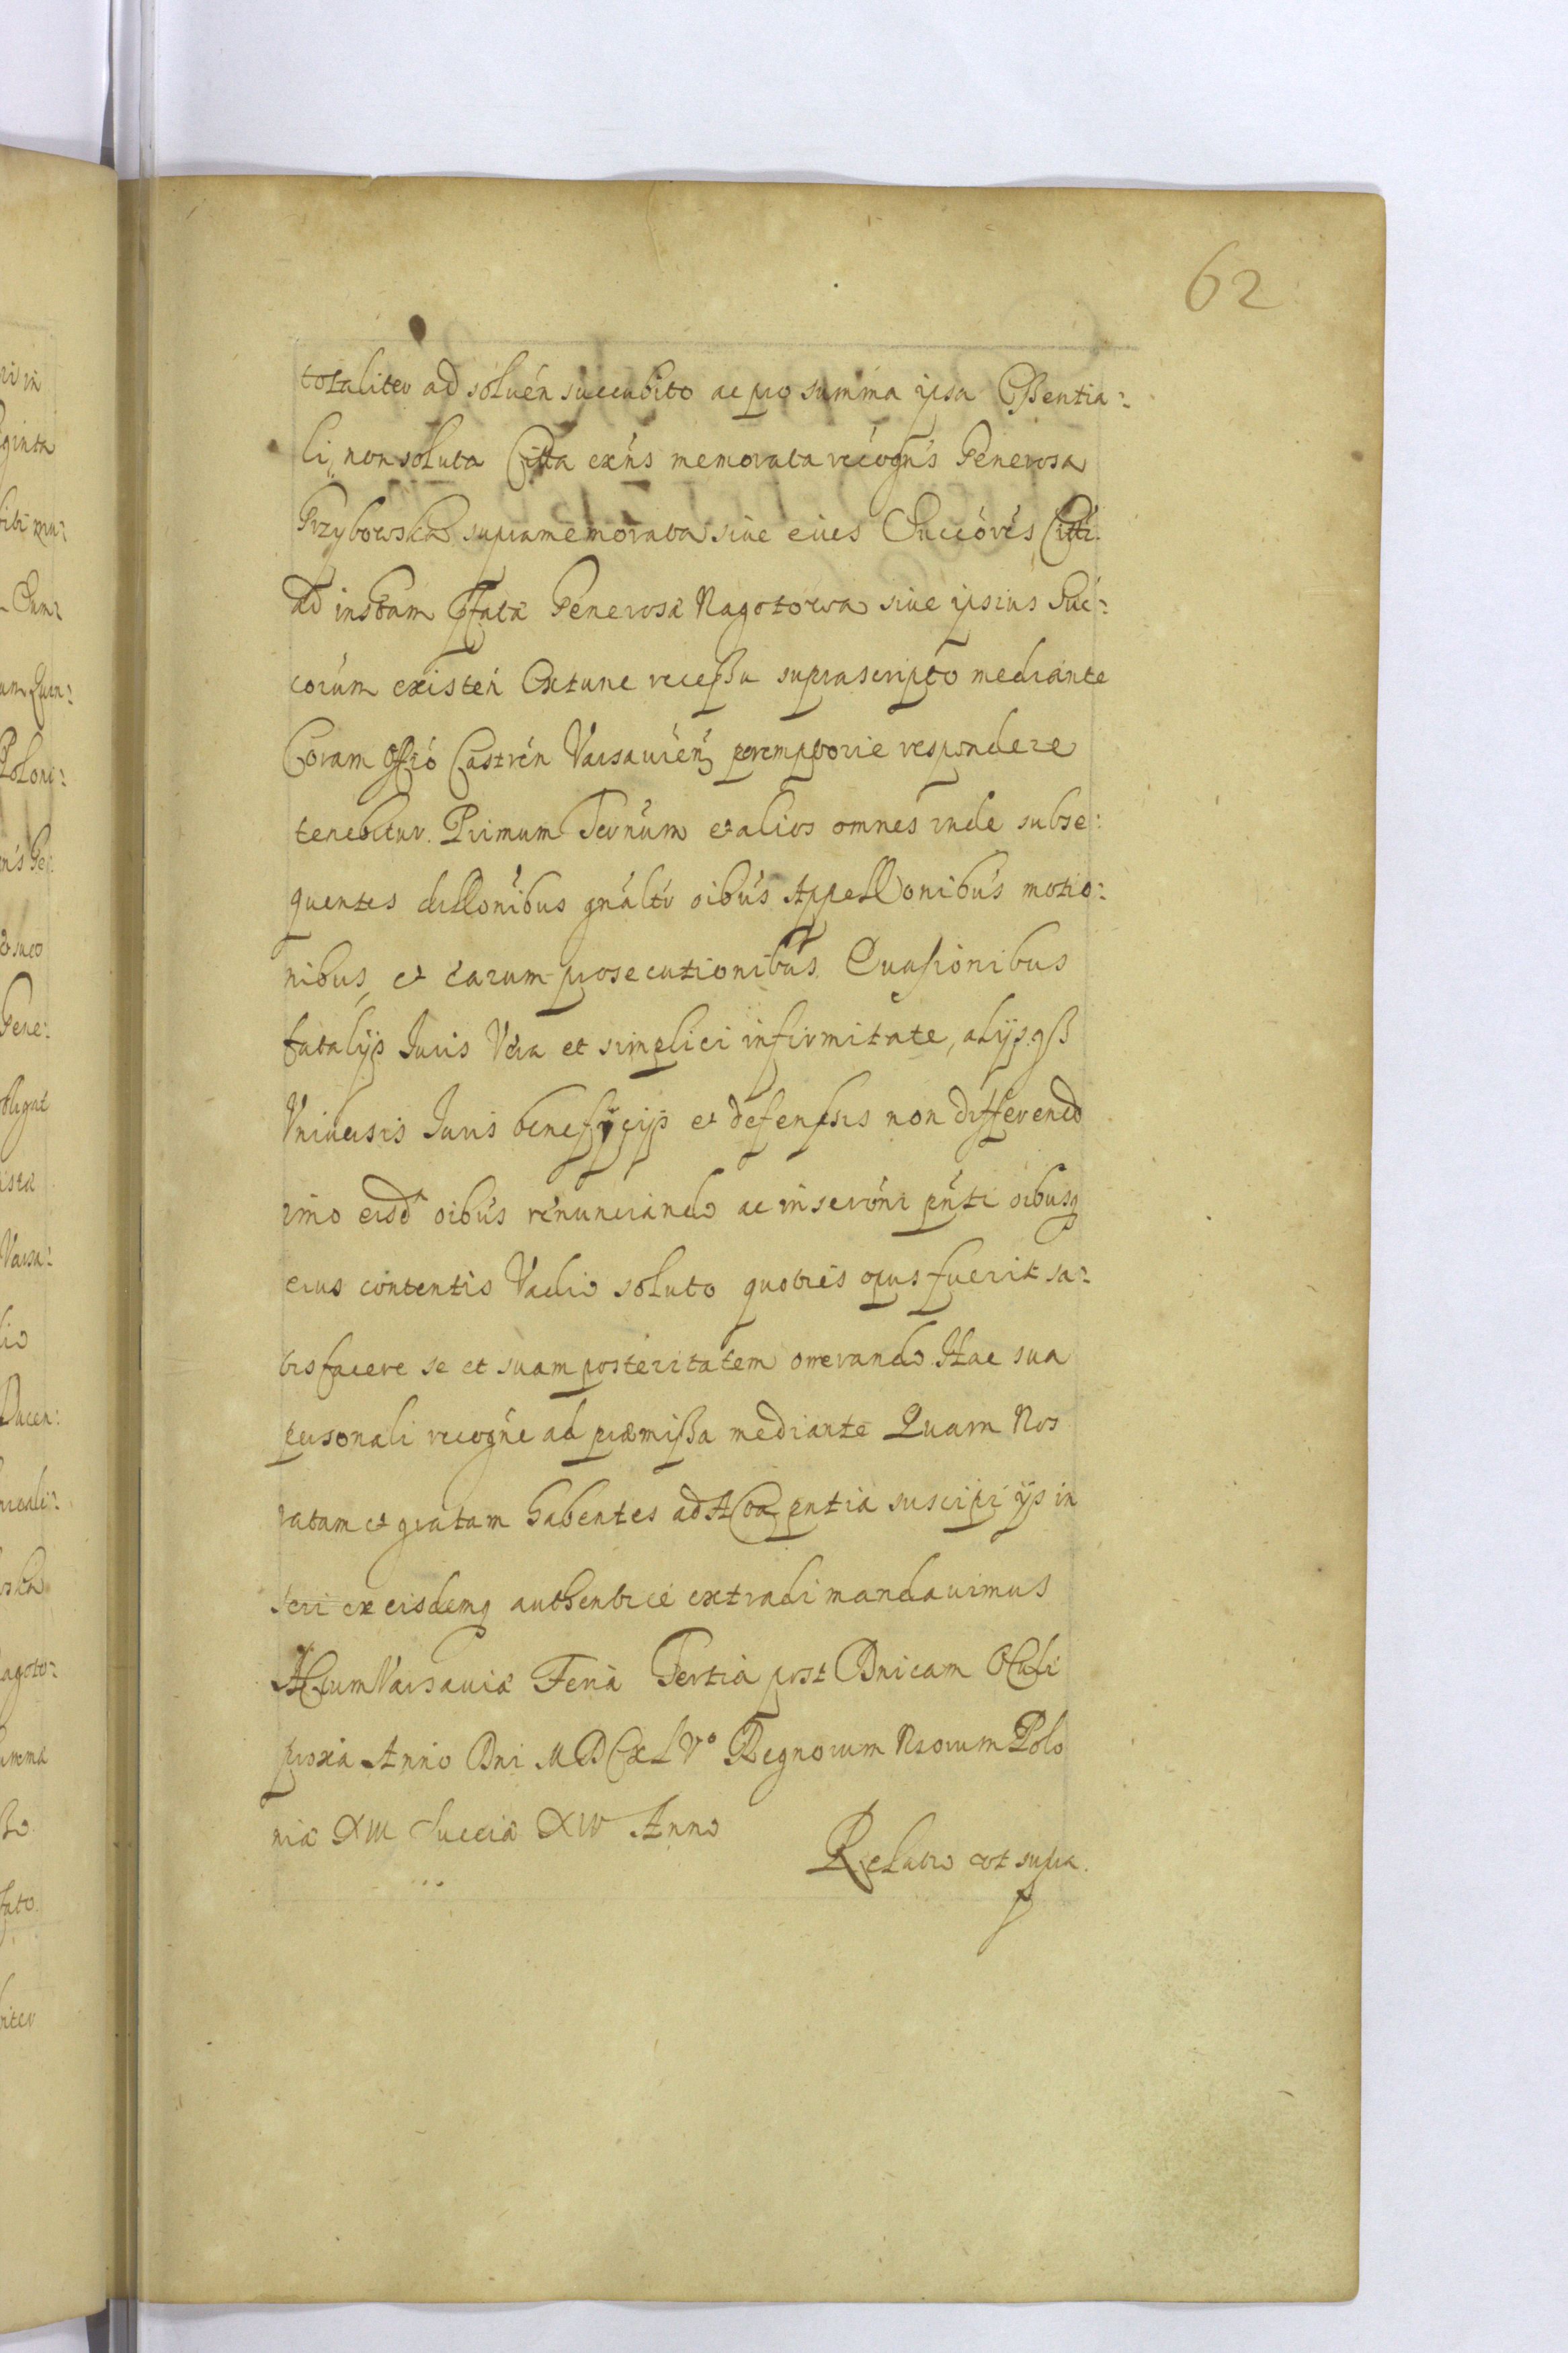 62
totaliter ad soluén succubito ac pro summa ipsa Essentia:
li, non soluta Citta exńs memorata recogńs Generosa
Przybowska supramemorata siue eius Succórés Citti
ad instam Pfatæ Generosæ Nagotowa siue ipsius Suc:
corúm existeń Extunc recessu suprascripto mediante
Coram Offió Castrén Varsauień peremptorie respondere
tenebitur. Primum Ternúm et alios omnes inde subse:
quentes dillónibus gnáltr oibús Appellonibús motio:
nibus, et earum prosecutionibus Euasionibus
fatalijs Juris Vera et simplici infirmitate, alijsqß
Vniuersis Juris beneficijs et defensis non differendo
imo eisd oibús renunciando ac inseróni pńti oibusq
eius contentis Vadio soluto quoties opus fuerit sa:
tisfacere se et suam posteritatem onerando. Hac sua
personali recogńe ad præmissa mediante Quam Nos
ratam et gratam habentes ad Acta pntia suscipi ijs in
seri ex eisdemq authentice extradi mandauimus
Actum Varsauiæ Feria Tertia post Dnicam Oculi
proxia Anno Dni MDCXLVo Regnorum Nrorum Polo
niæ XIII Sueciæ XIV Anno
Relatio ut supra.